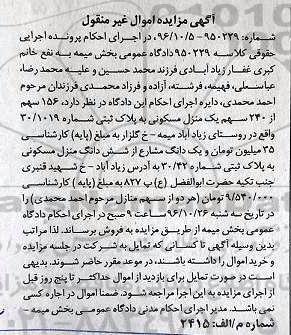 آگهی مزایده اموال غیر منقول
شماره: ۹۵۰۲۳۹ - ۹۶/۱۰/۵ در اجرای احکام پرونده اجرایی
حقوقی کلاسه ۹۵۰۲۳۹ دادگاه عمومی بخش میمه به نفع خانم
کبری غفار زیاد آبادی فرزند محمد حسین و علیه محمد رضا،
عباسعلی، فهیمه، فرشته، آزاده و فرزاد محمدی فرزندان مرحوم
احمد محمدی، دایره اجرای احکام این دادگاه در نظر دارد، ۱۵۶ سهم
از ۲۴۰ سهم یک منزل مسکونی به پلاک ثبتی شماره ۳۰/۱۰۱۹
واقع در روستای زیاد آباد میمه - خ گلزار به مبلغ (پایه) کارشناسی
۳۵ میلیون تومان و یک دانگ مشارع از شش دانگ منزل مسکونی
به پلاک ثبتی شماره ۳۰/۴۲ به آدرس زیاد آباد - خ شهید قنبری
جنب تکیه حضرت ابوالفضل (ع) پ ۸۲۷ به مبلغ (پایه) کارشناسی
۹/۵۴۰/۰۰۰ تومان (هر دو از سهم منازل مرحوم احمد محمدی) را
در تاریخ سه شنبه ۹۶/۱۰/۲۶ ساعت ۹ صبح در اجرای احکام دادگاه
عمومی بخش میمه از طریق مزایده به فروش برساند. لذا مراتب
بدین وسیله آگهی تا کسانی که تمایل به شرکت در جلسه مزایده
و خرید اموال را داشته باشند، در موعد مقرر حاضر شوند. بدیهی
است در صورت تمایل برای بازدید از اموال حداکثر تا پنج روز قبل
از اجرای مزایده به این اجرا مراجعه شود. ضمنا اموال در اجاره کسی
نمی باشد. مدیر اجرای احکام مدنی دادگاه عمومی بخش میمه
شماره م/الف: ۲۴۱۵